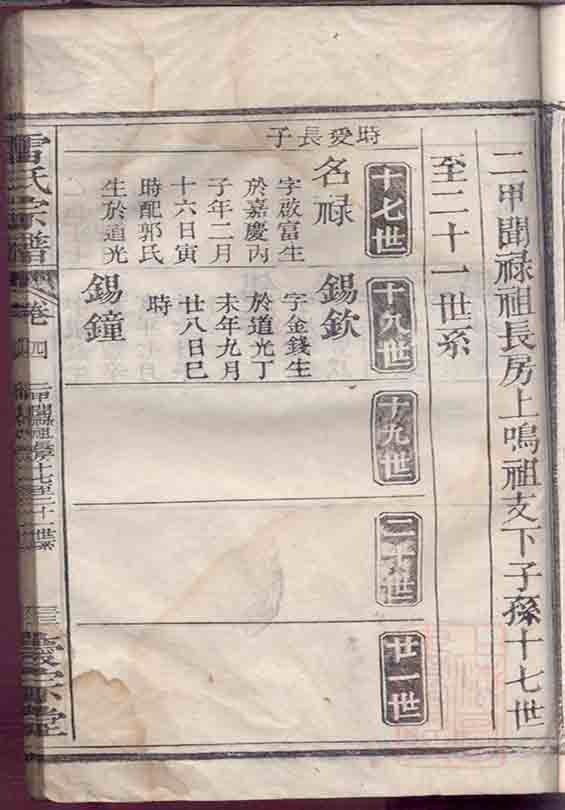 二甲聞祿祖長房上鳴祖支下子孫十七世
至二十一世系
十七世
時愛長子
名祿
字啟富生
於嘉慶丙
子年二月
十六日寅
時配郭氏
生於道光
十八世
錫欽
字金錢生
於道光丁
未年九月
廿八日巳
時
錫鐘
十九世
二十世
廿一世
雷氏宗譜
卷四